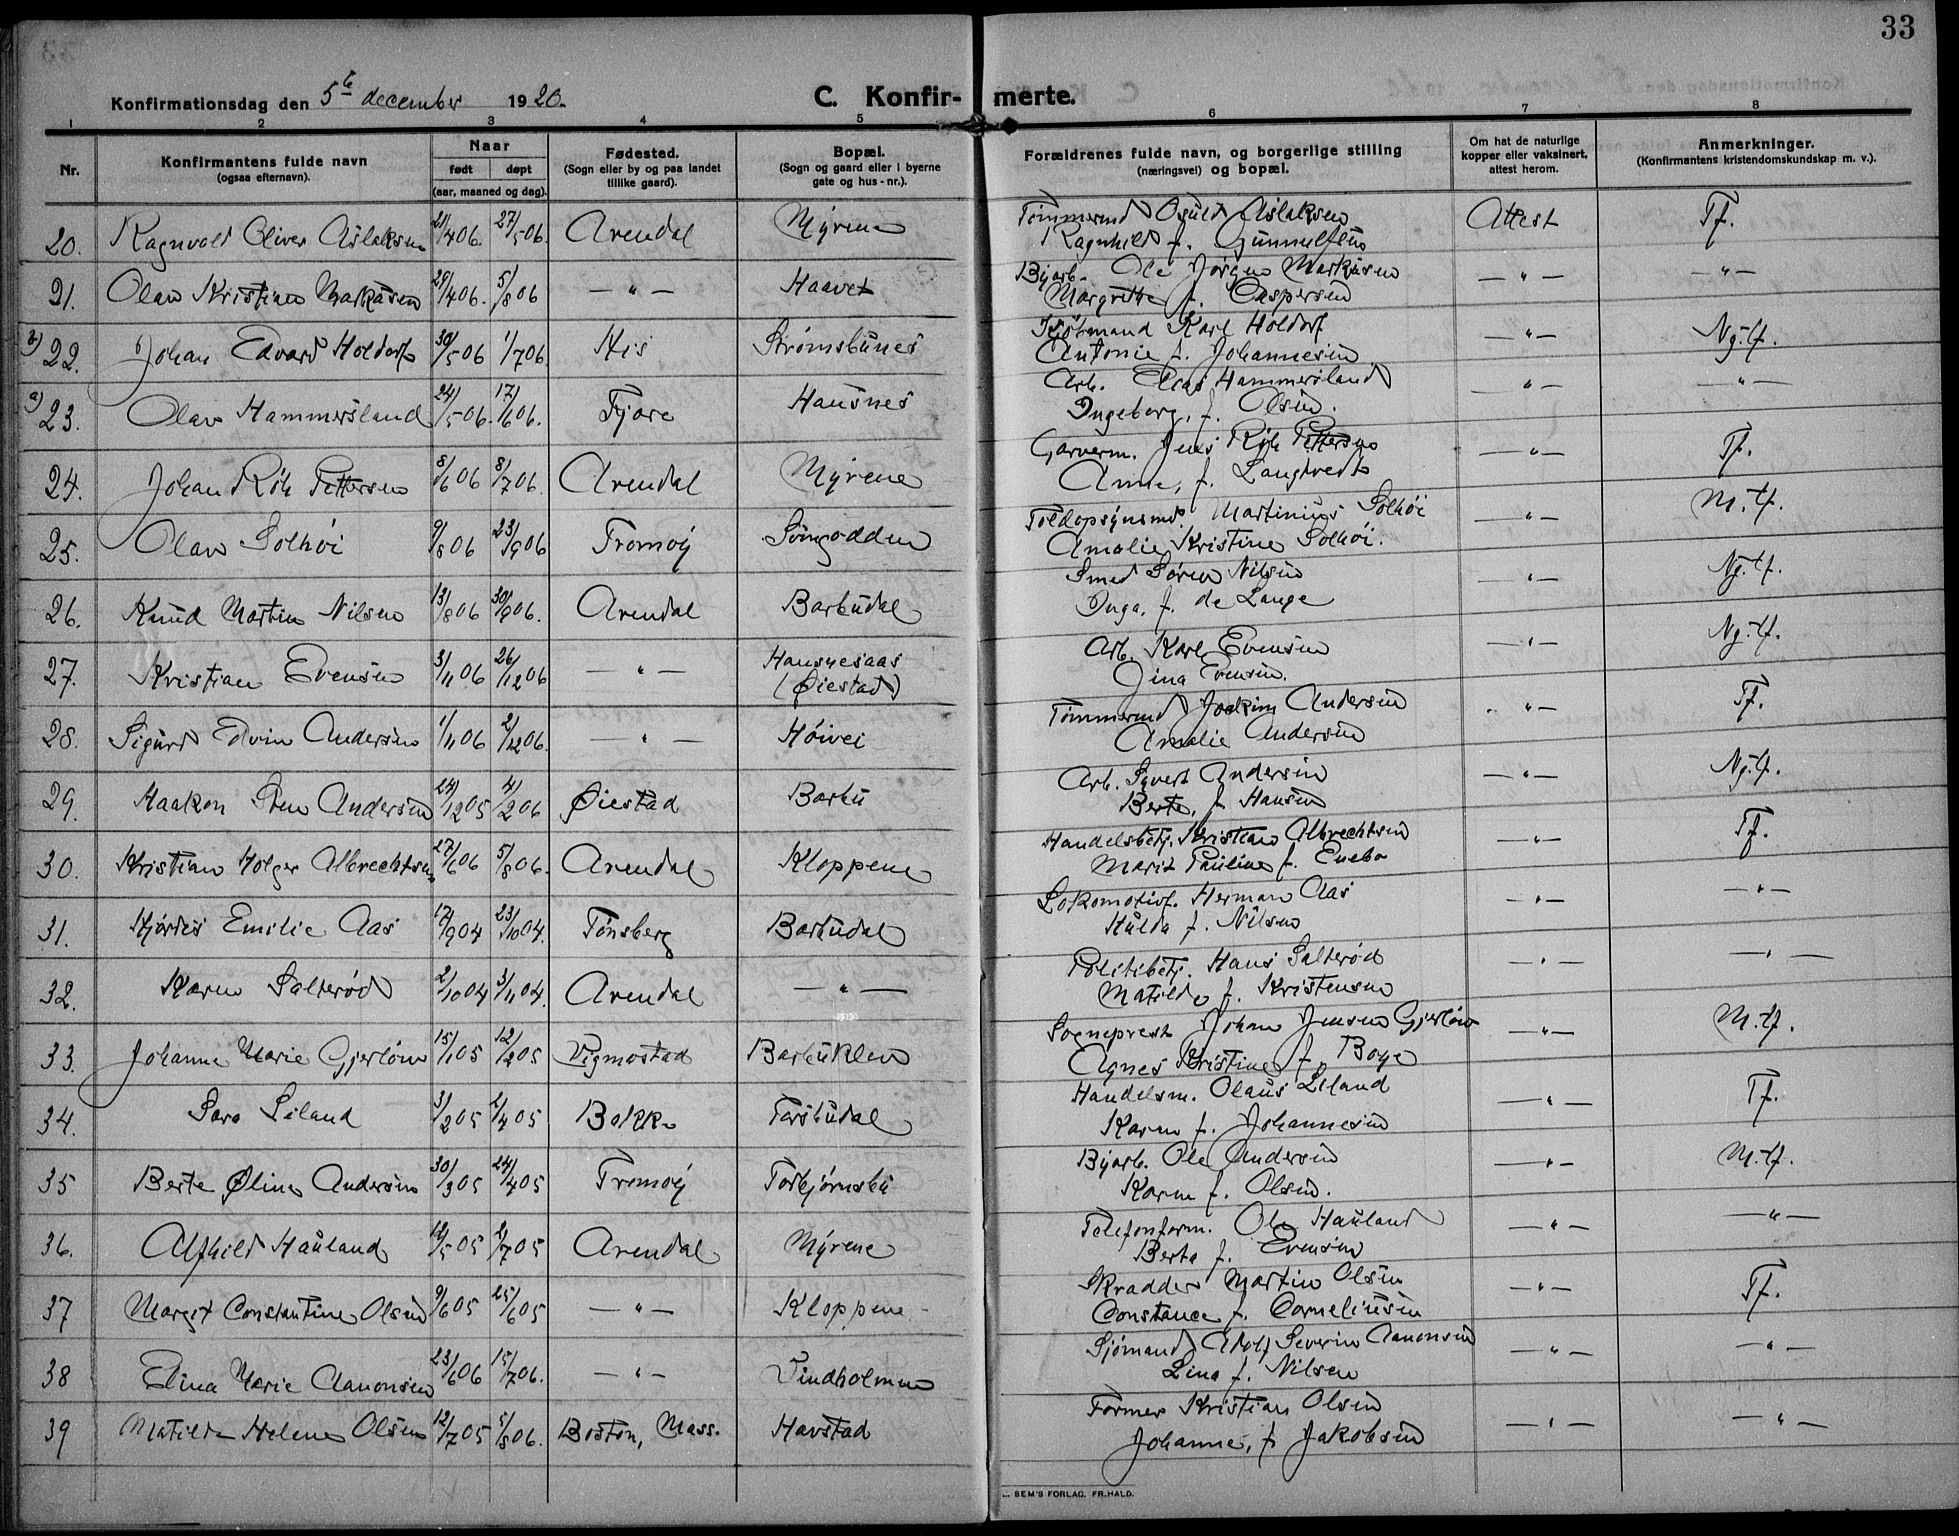 33
Konfirmationsdag den 5te december 1920. C. Konfir- merte.
1 2 3 4 5 6 7 8
Nr. Konfirmantens fulde navn (ogsaa efternavn). Naar født døpt (aar, maaned og dag). Fødested. (Sogn eller by og paa landet tillike gaard). Bopæl. (Sogn og gaard eller i byerne gate og hus-nr.). Forældrenes fulde navn, og borgerlige stilling (næringsvei) og bopæl. Om hat de naturlige kopper eller vaksinert, attest herom. Anmerkninger. (Konfirmantens kristendomskundskap m. v.).
20. Ragnvald Oliver Aslaksen 21/4 06. 27/5 06. Arendal Myrene Tømmermd Osuld Aslaksen Attest Tf.
Ragnhild f. Gunnulfsen
21. Olav Kristian Markusen 29/4 06. 5/8 06 —"— Haavet Byarb. Ole Jørgen Markusen —"— —"—
Margrethe f. Caspersen
b) 22. Johan Edvard Holdorf 30/5 06 1/7 06. His Strømsbunes Kjøbmand Karl Holdorf —"— Ng.tf.
Antonie f. Johannesen
a) 23. Olav Hammersland 24/5 06. 17/6 06. Fjære Hausnes Arb. Elias Hammersland —"— —"—
Ingeborg, f. Olsen.
24. Johan Röh Pettersen 8/6 06 8/7 06. Arendal Myrene Garverm. Jens Röh Pettersen —"— Tf.
Anne, f. Langtvedt
25. Olav Solhøi 9/8 06 23/9 06 Tromøy Songodden Toldopsynsmd. Martinius Solhøi —"— M.tf.
Amalie Kristine Solhøi.
26. Knud Martin Nilsen 13/8 06 30/9 06. Arendal Barbudal Smed Søren Nilsen —"— Ng.tf.
Inga, f. de Lange
27. Kristian Evensen 3/11 06 26/12 06 —"— Hausnesaas (Øiestad) Arb. Karl Evensen —"— Ng.tf.
Gina Evensen.
28. Sigurd Edvin Andersen 1/11 06 2/12 06. —"— Høivei Tømmermd Joakim Andersen —"— Tf.
Amalie Andersen
29. Haakon Sven Andersen 24/12 05 4/2 06 Øiestad Barbu Arb. Syvert Andersen —"— Ng.tf.
Berte, f. Hansen
30. Kristian Holger Albrechtsen 27/6 06 5/8 06. Arendal Kloppene Handelsbetj. Kristian Albrechtsen —"— Tf.
Marit Pauline f. Enebo
31. Hjørdis Emilie Aas 17/9 04 23/10 04. Tønsberg Barbudal Lokomotivf. Herman Aas —"— —"—
Hulda f. Nilsen
32. Karen Salterød 2/10 04 3/11 04. Arendal —"— Politibetj. Hans Salterød —"— —"—
Matilde f. Kristensen
33. Johanne Marie Gjerløw 15/1 05 12/2 05 Vigmostad Barbuklev Sogneprest Johan Jensen Gjerløw —"— M.tf.
Agnes Kristine f. Boye
34. Sara Liland 3/2 05 2/4 05 Bakke Torsbudal Handelsm. Olaus Liland —"— Tf.
Karen f. Johannesen
35 Berte Øline Andersen 30/3 05 24/4 05 Tromøy Torbjørnsbu Byarb. Ole Andersen —"— M.tf.
Karen f. Olsen.
36. Alfhild Hauland 19/5 05 2/7 05 Arendal Myrene Telefonform. Ole Hauland —"— —"—
Berta f. Evensen
37 Margit Constantine Olsen 9/6 05 25/6 05 —"— Kloppene Skradder Martin Olsen —"— Tf.
Constance f. Corneliusen
38 Elina Marie Aanonsen 23/6 06 15/7 06. —"— Vindholmen Sjømand Adolf Severin Aanonsen —"— —"—
Lina f. Nilsen
39 Matilde Helene Olsen 12/7 05 5/8 06. Boston, Mass. Havstad Former Kristian Olsen —"— —"—
Johanne, f. Jakobsen
SEM'S FORLAG. FR.HALD.